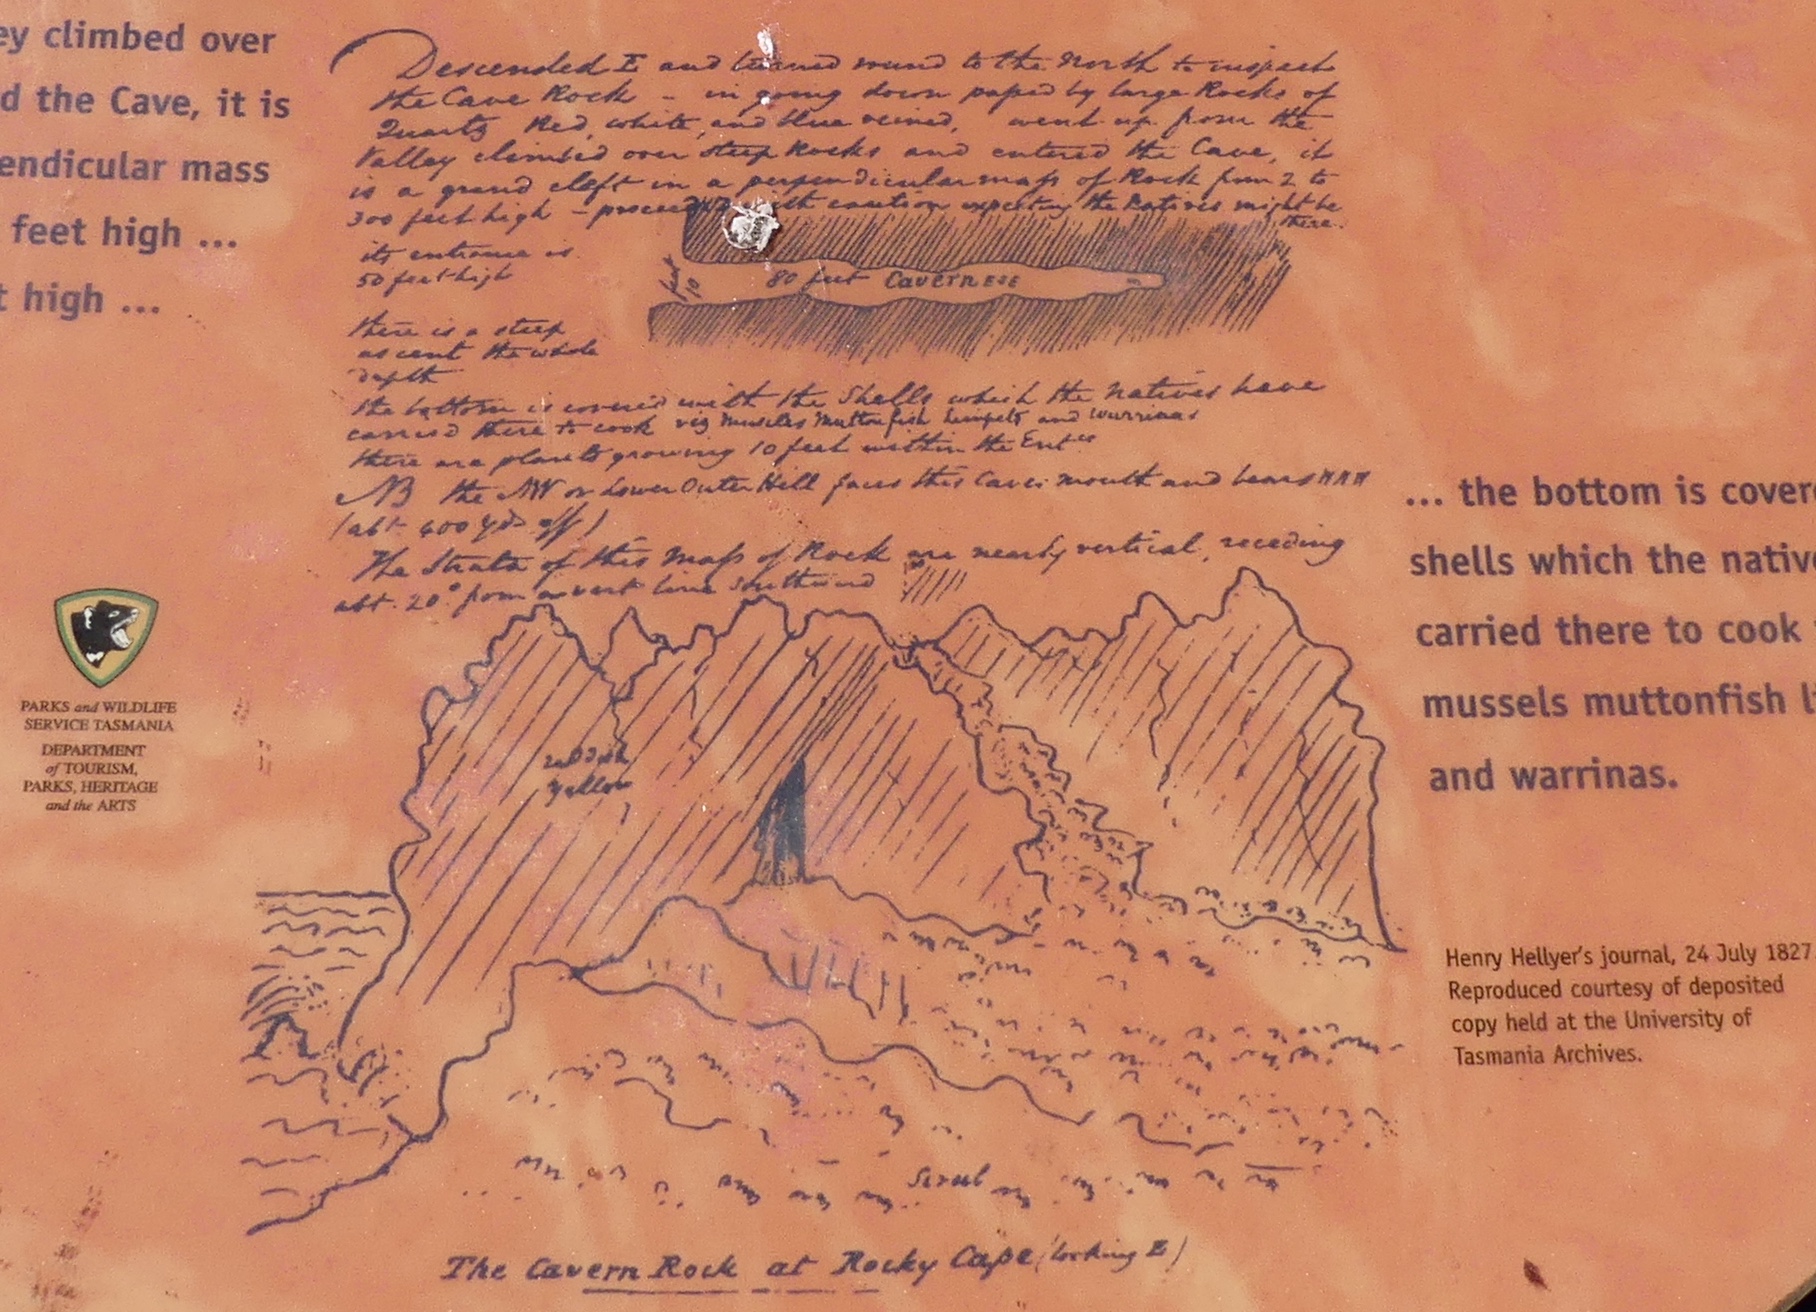 ey climbed over
d the Cave, it is
endicular mass
feet high ...
t high ...
Descended E and turned round to the North to inspect
the Cave Rock - in going down passed by large Rocks of
Quartz Red, white, and blue veined, went up from the
Valley climbed over steep Rocks and entered the Cave, it
is a grand cleft in a perpendicular mass of Rock from 2 to
300 feet high - proceeded with caution expecting the Natives might be
there.
its entrance is
50 feet high
feet
10
80 feet CAVERN ESE
there is a steep
ascent the whole
depth
the bottom is covered with the Shells which the natives have
carried there to cook viz Muscles Muttonfish Limpets and warrinas
there are plants growing 10 feet within the Entce
NB the NW or Lower Outer Hill faces this Cave's mouth and bears
(abt 400 yds off)
The Strata of this Mass of Rock are nearly vertical, receding
abt. 20° from a vert line Southward
reddish
yellow
Scrub
The Cavern Rock at Rocky Cape (looking E)
PARKS and WILDLIFE
SERVICE TASMANIA
DEPARTMENT
of TOURISM,
PARKS, HERITAGE
and the ARTS
... the bottom is cover
shells which the native
carried there to cook
mussels muttonfish li
and warrinas.
Henry Hellyer's journal, 24 July 1827
Reproduced courtesy of deposited
copy held at the University of
Tasmania Archives.